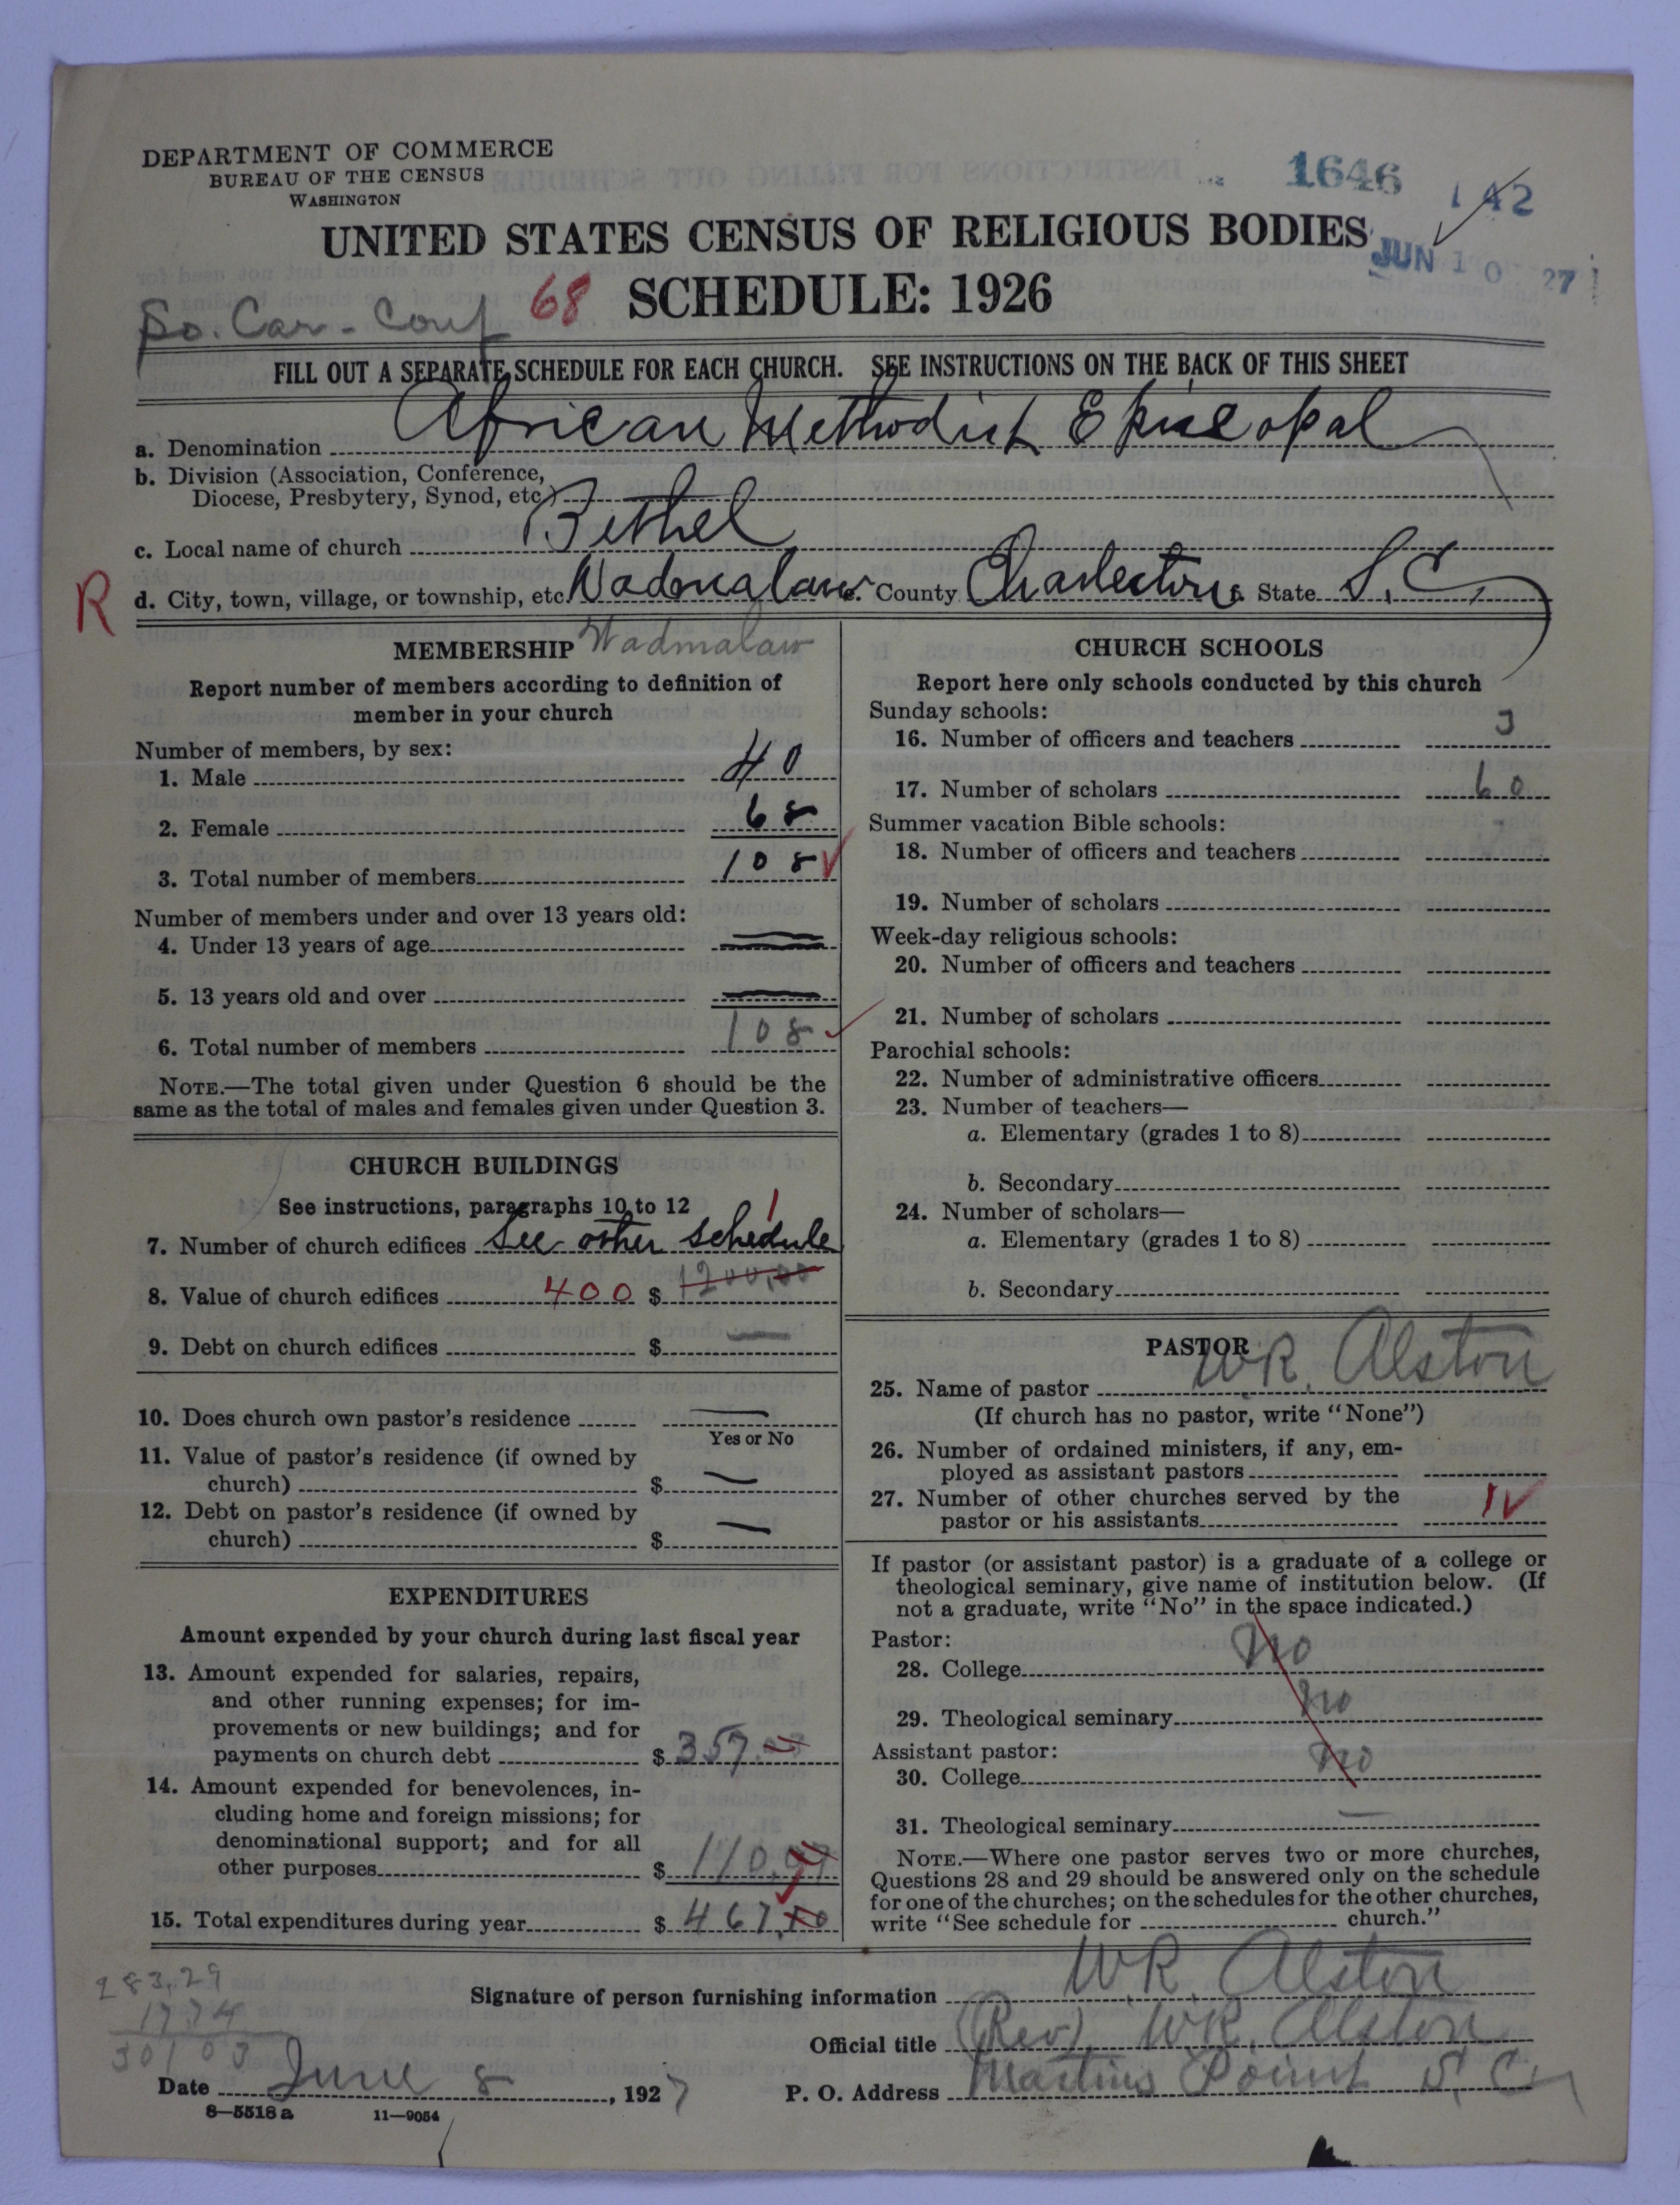 DEPARTMENT OF COMMERCE
BUREAU OF THE CENSUS
WASHINGTON
1646
142
UNITED STATES CENSUS OF RELIGIOUS BODIES
JUN 10 27
So. Car. Conf 68 SCHEDULE: 1926
FILL OUT A SEPARATE SCHEDULE FOR EACH CHURCH. SEE INSTRUCTIONS ON THE BACK OF THIS SHEET
a. Denomination African Methodist Episcopal
b. Division (Association, Conference,
Diocese, Presbytery, Synod, etc.)
c. Local name of church Bethel
R d. City, town, village, or township, etc. Wadmalaw County Charleston State S.C.
MEMBERSHIP Wadmalaw
Report number of members according to definition of
member in your church
Number of members, by sex:
1. Male 40
2. Female 68
3. Total number of members 108
Number of members under and over 13 years old:
4. Under 13 years of age
5. 13 years old and over
6. Total number of members 108
NOTE.—The total given under Question 6 should be the
same as the total of males and females given under Question 3.
CHURCH BUILDINGS
See instructions, paragraphs 10 to 12
1
7. Number of church edifices See other schedule
8. Value of church edifices 400 $ 1200,00
9. Debt on church edifices $ —
10. Does church own pastor's residence —
Yes or No
11. Value of pastor's residence (if owned by
church) $ —
12. Debt on pastor's residence (if owned by
church) $ —
EXPENDITURES
Amount expended by your church during last fiscal year
13. Amount expended for salaries, repairs,
and other running expenses; for im-
provements or new buildings; and for
payments on church debt $ 357
14. Amount expended for benevolences, in-
cluding home and foreign missions; for
denominational support; and for all
other purposes $ 110
15. Total expenditures during year $ 467
CHURCH SCHOOLS
Report here only schools conducted by this church
Sunday schools:
16. Number of officers and teachers 3
17. Number of scholars 60
Summer vacation Bible schools:
18. Number of officers and teachers
19. Number of scholars
Week-day religious schools:
20. Number of officers and teachers
21. Number of scholars
Parochial schools:
22. Number of administrative officers
23. Number of teachers—
a. Elementary (grades 1 to 8)
b. Secondary
24. Number of scholars—
a. Elementary (grades 1 to 8)
b. Secondary
PASTOR
25. Name of pastor W.R. Alston
(If church has no pastor, write "None")
26. Number of ordained ministers, if any, em-
ployed as assistant pastors
27. Number of other churches served by the
pastor or his assistants 1
If pastor (or assistant pastor) is a graduate of a college or
theological seminary, give name of institution below. (If
not a graduate, write "No" in the space indicated.)
Pastor:
28. College no
29. Theological seminary no
Assistant pastor:
30. College no
31. Theological seminary —
NOTE.—Where one pastor serves two or more churches,
Questions 28 and 29 should be answered only on the schedule
for one of the churches; on the schedules for the other churches,
write "See schedule for church."
283,29
17.74
30103
Signature of person furnishing information W.R. Alston
Official title (Rev) W.R. Alston
Date June 8, 1927 P. O. Address Martins Point S.C.
8—5518 a 11—9054